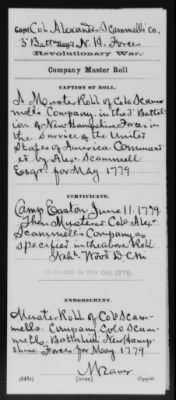 Capt. Col. Alexander Scammell's Co.,
3 Batt'n N. H. Forces
Revolutionary War.
Company Muster Roll
CAPTION OF ROLL.
A Muster Roll of Colo Scam-
mells Company in the 3d Battal-
ion of New Hampshire Forces in
the service of the United
States of America Command-
ed by Alex. Scammell
Esqr. for May 1779
CERTIFICATE.
Camp Easton June 11. 1779
then Mustered Col. Alex.
Scammells Company as
specified in the above Roll
Wood D.C.M
ENDORSEMENT.
Muster Roll of Colo Scam-
mells Company Colo Scam-
mells Battalion New Hamp-
shire Forces for May 1779
Copyist.